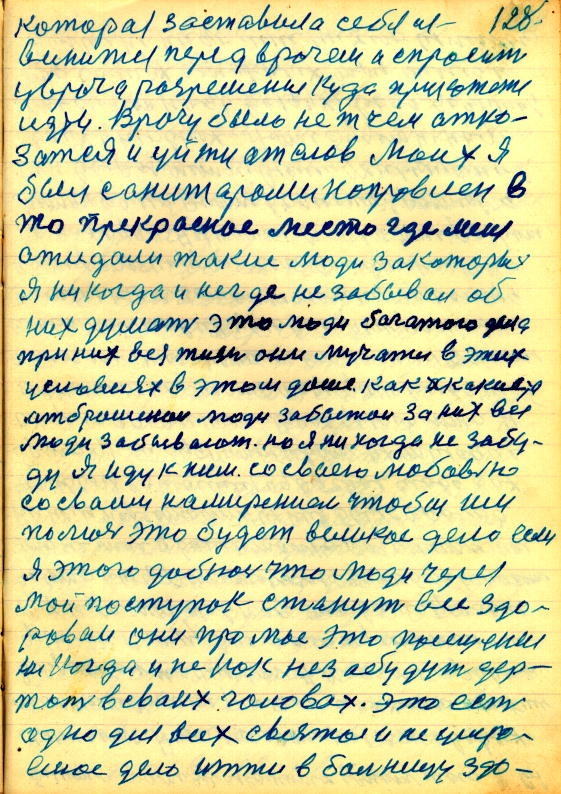 которая заставила себя из- 128.
винится перед врочем и спросить
у врача разрешение куда прикажете
идти. Врачу было не чем отко-
затся и уйти от слов моих Я
был санитарами нопровлен в
то прекрасное место где меня
ожидали такие люди за которых
я никогда и негде не забывал об
них думать это люди богатого дела
при них вся жизнь они мучатся в этих
условиях в этом доме. как какиета
отброшеной люди забытой за них все
люди забывают. но я никогда не забу-
ду Я иду к ним. со своею любовью
со своим намирением чтобы им
помоч это будет великое дело если
я этого добюся что люди через
мой поступок станут все здо-
ровай они про мое это посещение
ни когда и не как незабудут дер-
жать в своих головах. это есть
одно для всех святое и не умира-
емое дело итти в болницу здо-